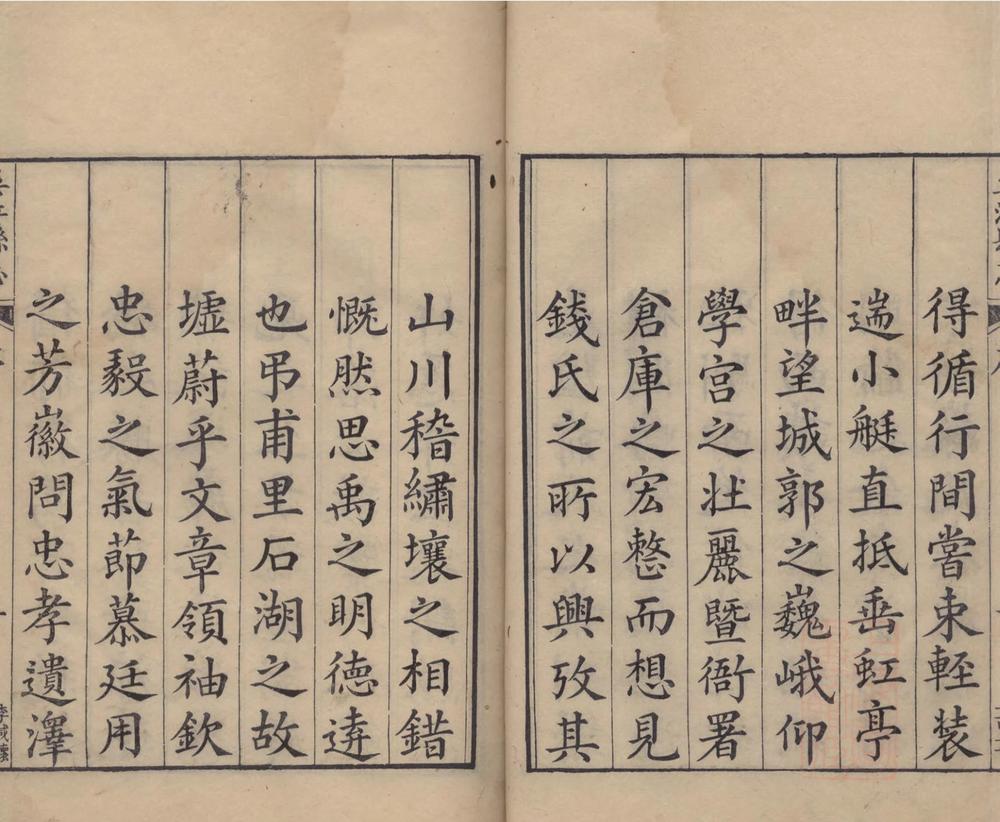 得循行間嘗束輕裝
遄小艇直抵垂虹亭
畔望城郭之巍峨仰
學宮之壯麗暨衙署
倉庫之宏整而想見
錢氏之所以興攷其
山川稽繡壤之相錯
慨然思禹之明德逵
也弔甫里石湖之故
墟蔚乎文章領袖欽
忠毅之氣節慕廷用
之芳徽問忠孝遺澤